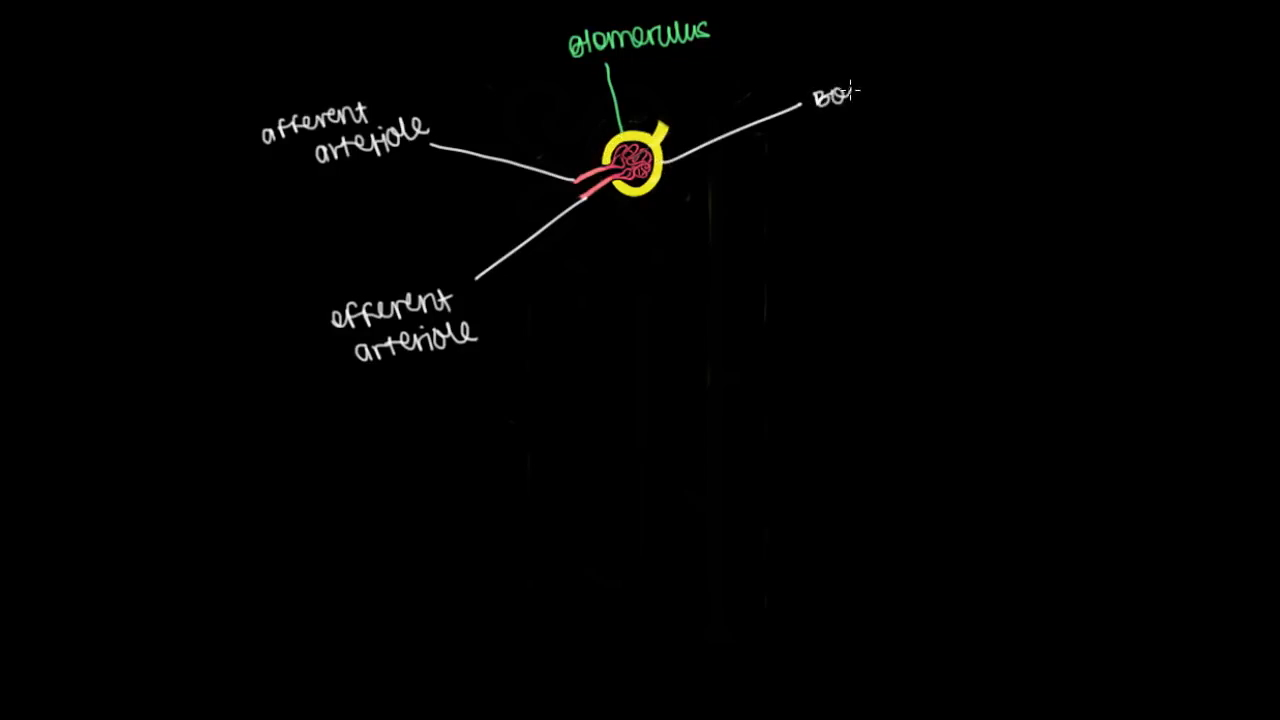 glomerulus
afferent
arteriole
Bo
efferent
arteriole